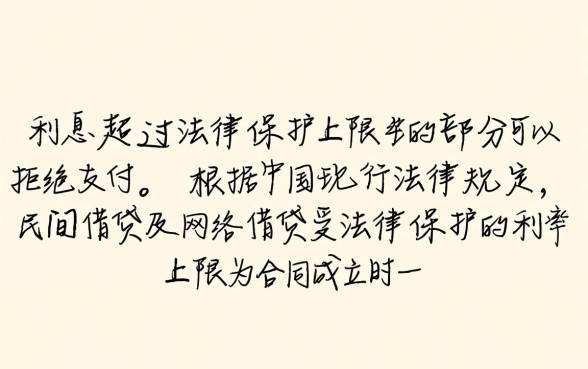 利息超过法律保护上限的部分可以
拒绝支付。 根据中国现行法律规定,
民间借贷及网络借贷受法律保护的利率
上限为合同成立时一